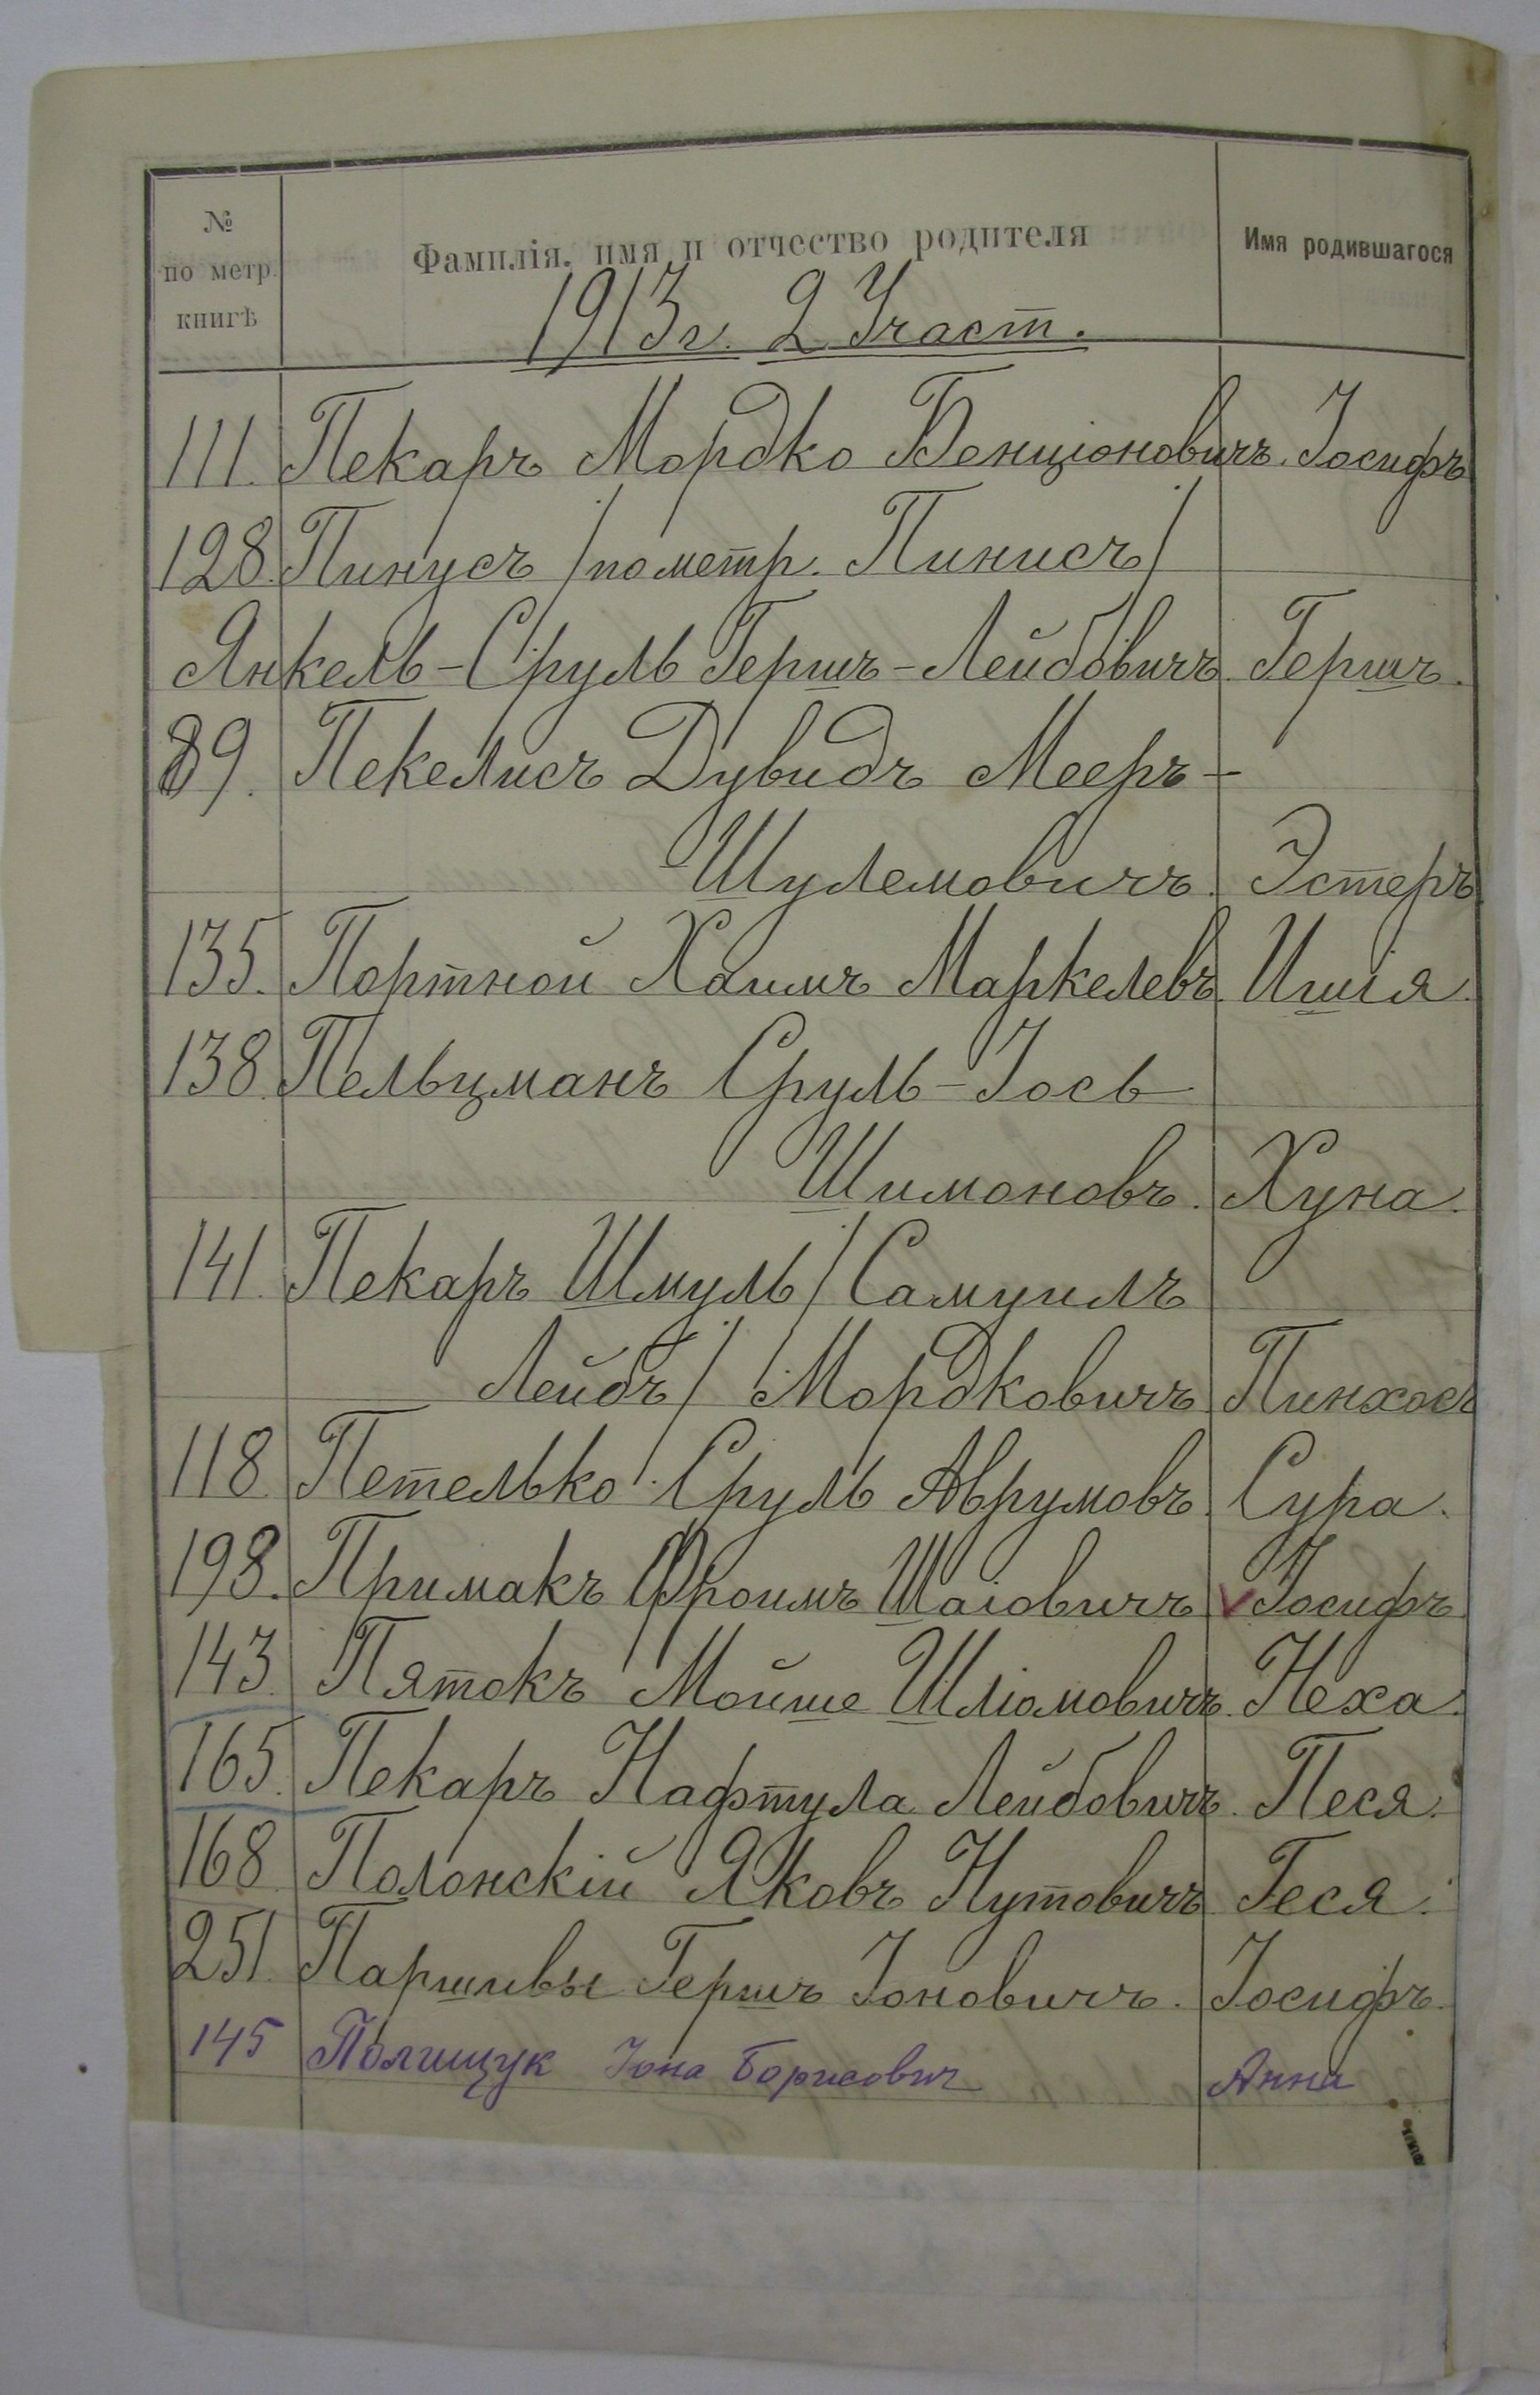 № по метр. книгѣ Фамилія, имя и отчество родителя Имя родившагося
1913 г. 2 Участ.
111. Пекарь Мордко Бенціоновичъ. Іосифъ
128. Пинусъ /по метр. Пинисъ/
Янкель-Сруль Гершъ-Лейбовичъ Гершъ.
89. Пекелисъ Дувидъ Мееръ-
Шулемовичъ. Эстеръ
135. Портной Хаимъ Маркелевъ. Ишія.
138. Пельцманъ Сруль-Іось
Шимоновъ. Хуна.
141. Пекаръ Шмуль /Самуилъ
Лейбъ/ Мордковичъ Пинхосъ
118 Петелько Сруль Аврумовъ. Сура.
198. Примакъ Фроимъ Шаіовичъ Іосифъ
143. Пятокъ Мойше Шліомовичъ. Неха.
165. Пекаръ Нафтула Лейбовичъ. Песя.
168 Полонскій Яковъ Нутовичъ Геся.
251. Паршивы Гершъ Іоновичъ. Іосифъ.
145 Полищук Іона Борисович Анна